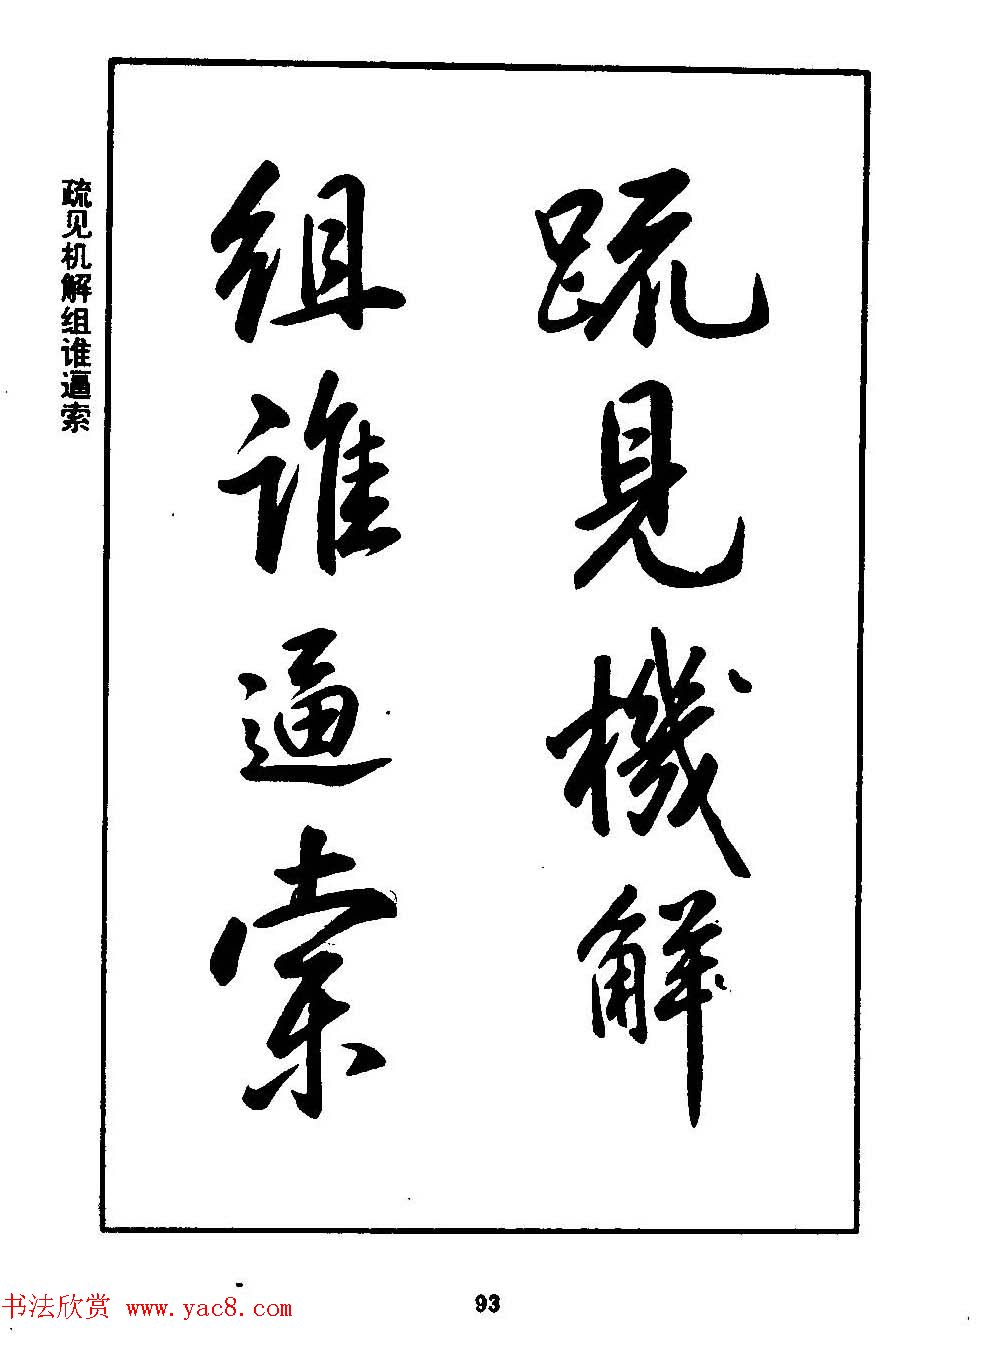 疏見機解
组谁逼索
疏见机解组谁逼索
书法欣赏 www.yac8.com
93